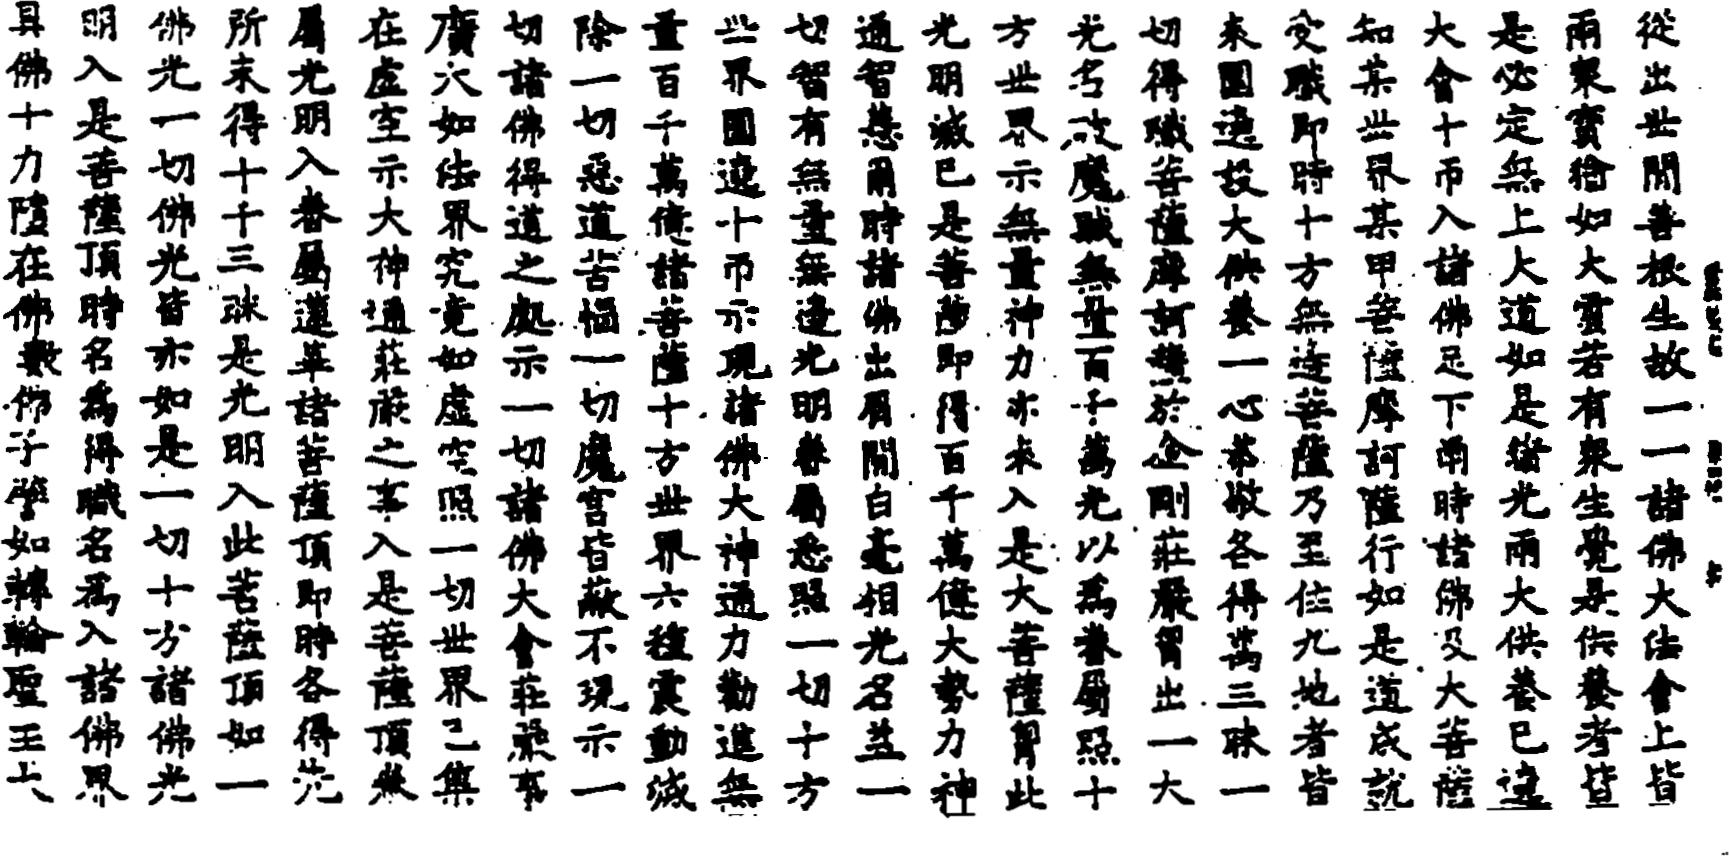 從出世間善根生故一一諸佛大法會上皆
雨衆寶猶如大雲若有衆生覺是供養者皆
是必定無上大道如是諸光雨大供養已遶
大會十帀入諸佛足下爾時諸佛及大菩薩
知某世界某甲菩薩摩訶薩行如是道成就
受職即時十方無邊菩薩乃至住九地者皆
來圍遶設大供養一心恭敬各得萬三昧一
切得職菩薩摩訶薩於金剛莊嚴胷出一大
光名破魔賊無量百千萬光以爲眷屬照十
方世界示無量神力亦來入是大菩薩胷此
光明滅已是菩薩即得百千萬億大勢力神
通智慧爾時諸佛出眉間白毫相光名益一
切智有無量無邊光明眷屬悉照一切十方
世界圍遶十帀示現諸佛大神通力勸進無
量百千萬億諸菩薩十方世界六種震動滅
除一切惡道苦惱一切魔宮皆蔽不現示一
切諸佛得道之處示一切諸佛大會莊嚴事
廣大如法界究竟如虛空照一切世界已集
在虛空示大神通莊嚴之事入是菩薩頂眷
屬光明入眷屬蓮華諸菩薩頂即時各得先
所未得十千三昧是光明入此菩薩頂如一
佛光一切佛光皆亦如是一切十方諸佛光
明入是菩薩頂時名爲得職名爲入諸佛界
具佛十力墮在佛數佛子譬如轉輪聖王大